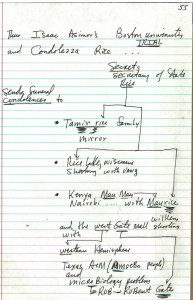 55
Then Isaac Asimov's Boston University
TRIAL
and Condolezza Rice ...
Secrets
secretary of State
Rice
Sends funeral
condolences to
Tamir rice family
mirror
Rice lake, wisconsin
shooting with
Kenya Mau Mau
Nairobi ..... with Maurice
and the west Gate mall shooting
with
western Hemisphere
Texas A+M
and microBiology problem
ROB - RoBerts Gate